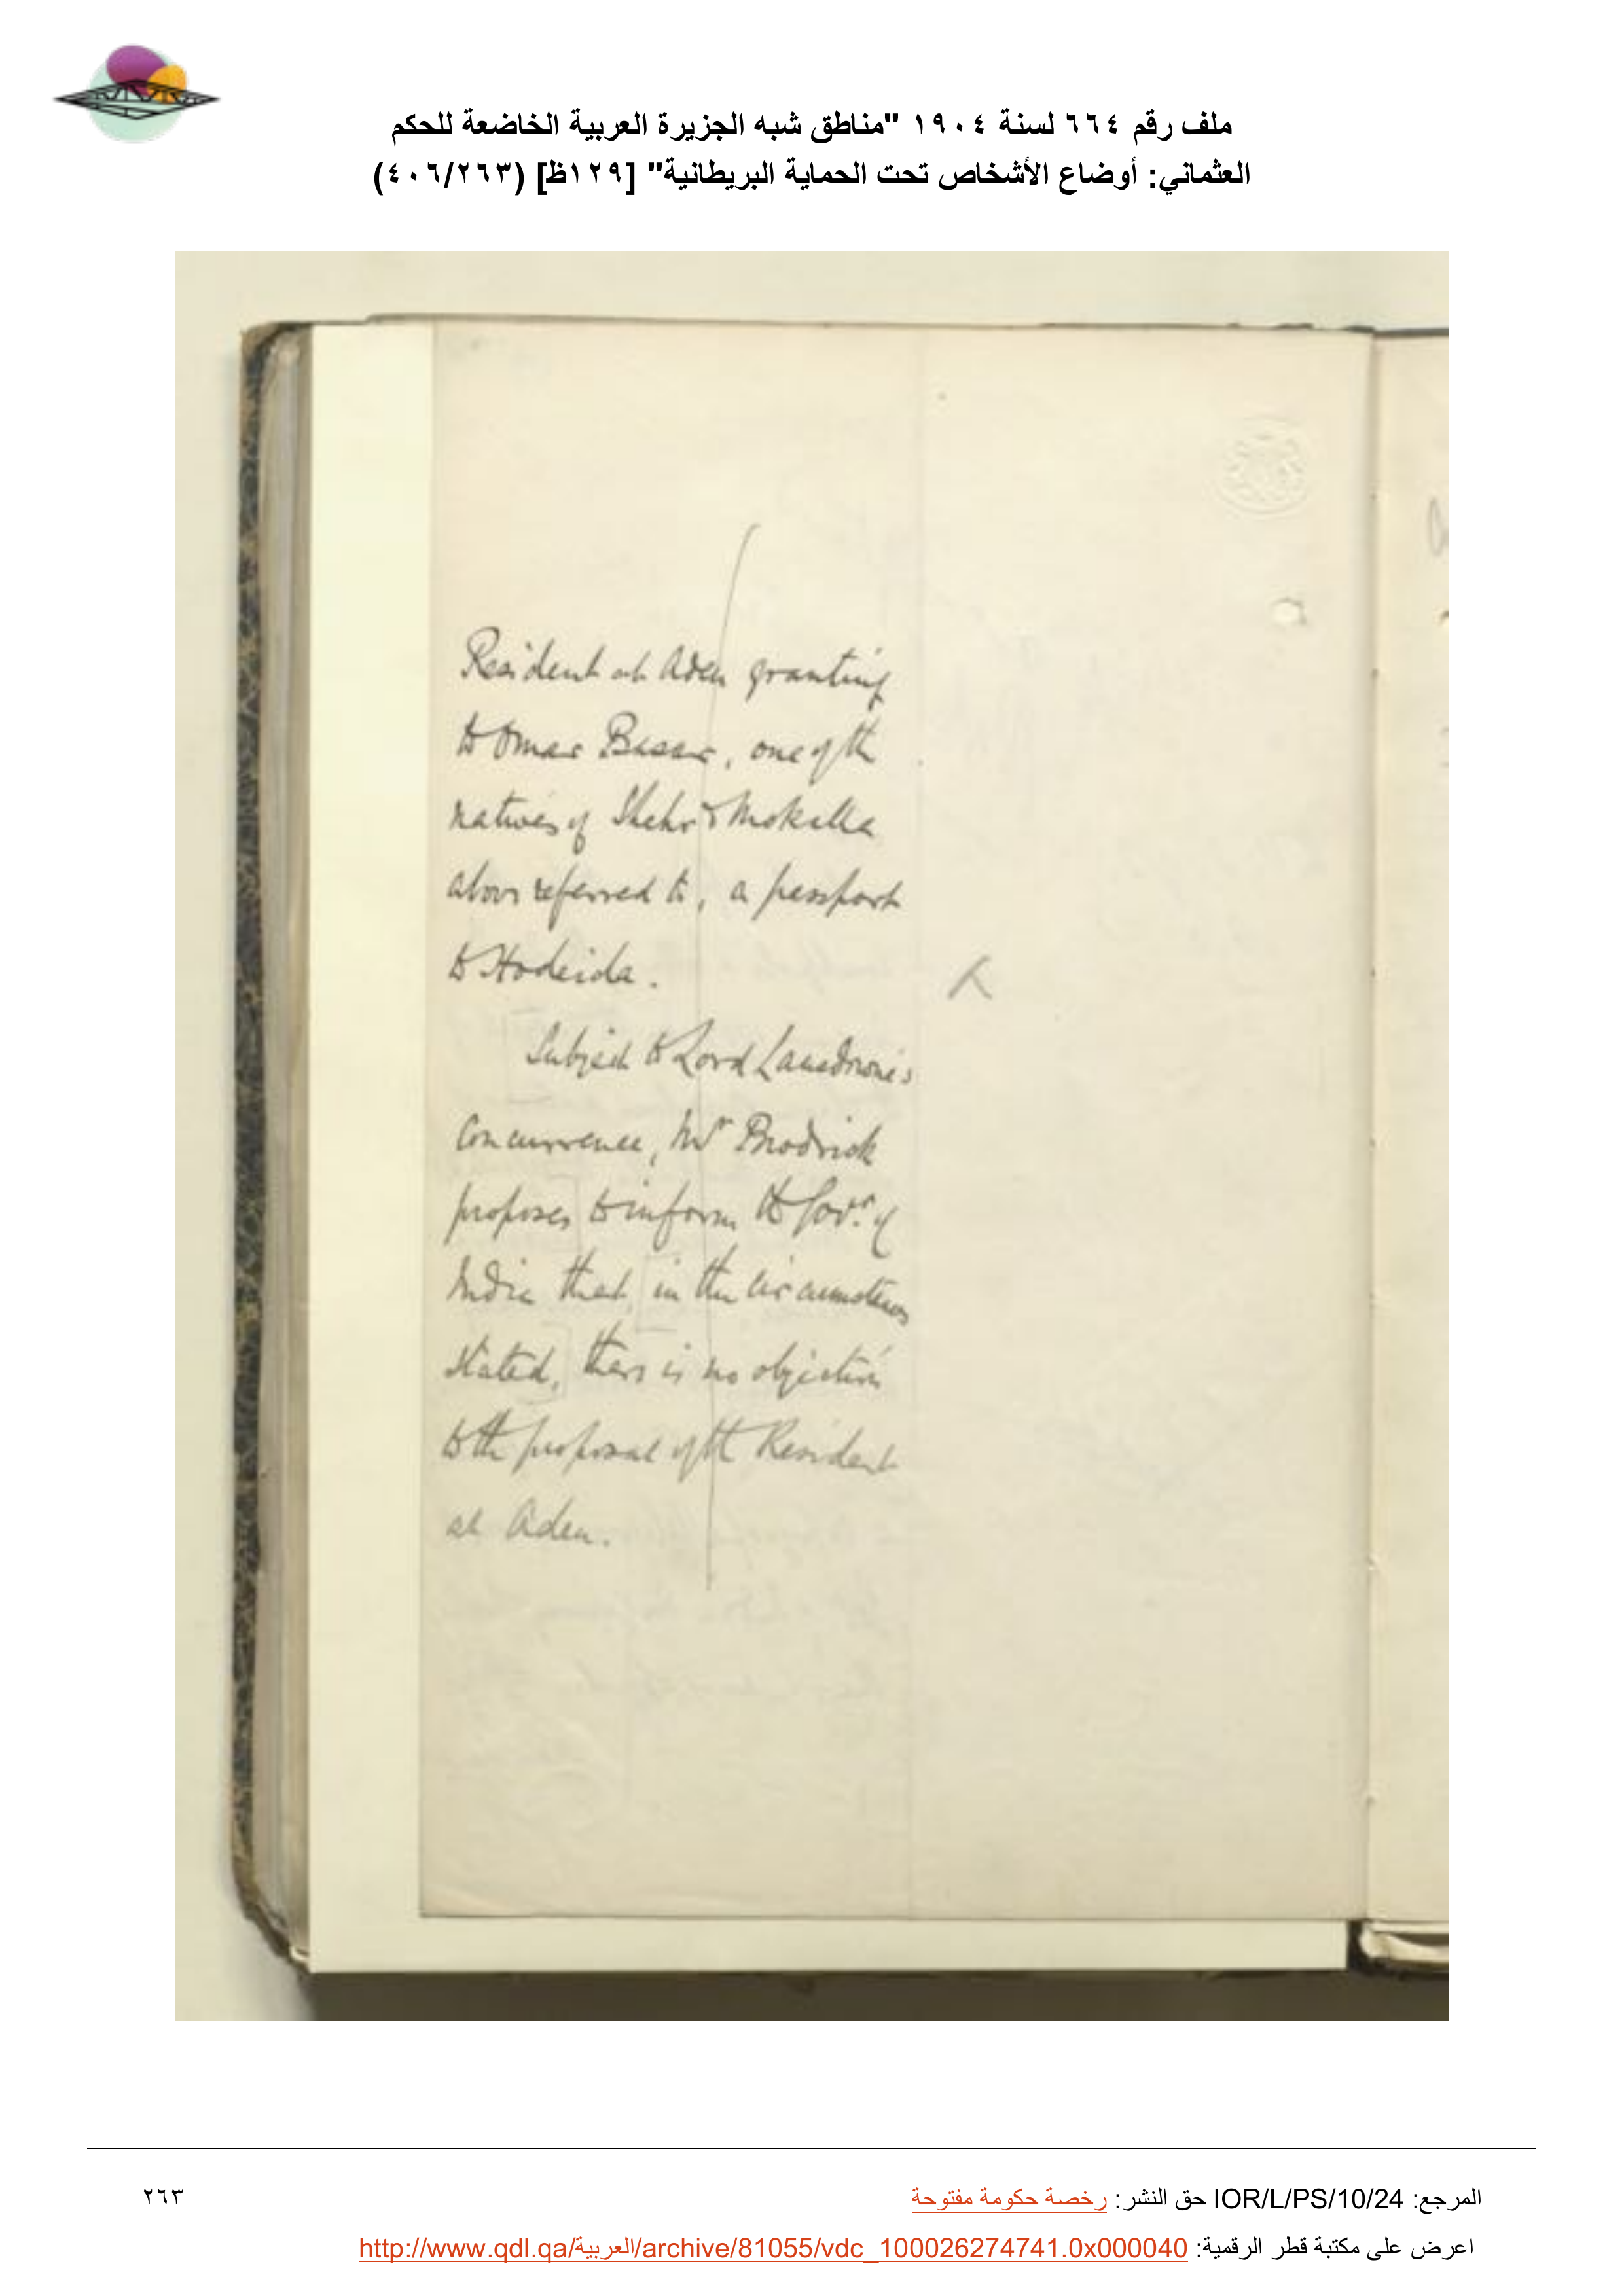 ملف رقم ٦٦٤ لسنة ١٩٠٤ "مناطق شبه الجزيرة العربية الخاضعة للحكم
العثماني: أوضاع الأشخاص تحت الحماية البريطانية" [١٢٩ظ] (٤٠٦/٢٦٣)
Resident at Aden granting
to Omar Basar, one of the
natives of Shehr & Mokalla
above referred to, a passport
to Hodeida.
Subject to Lord Lansdowne's
concurrence, Mr Brodrick
proposes to inform the Govt. of
India that, in the circumstances
stated, there is no objection
to the proposal of the Resident
at Aden.
المرجع: IOR/L/PS/10/24 حق النشر: رخصة حكومة مفتوحة
٢٦٣
اعرض على مكتبة قطر الرقمية: http://www.qdl.qa/العربية/archive/81055/vdc_100026274741.0x000040